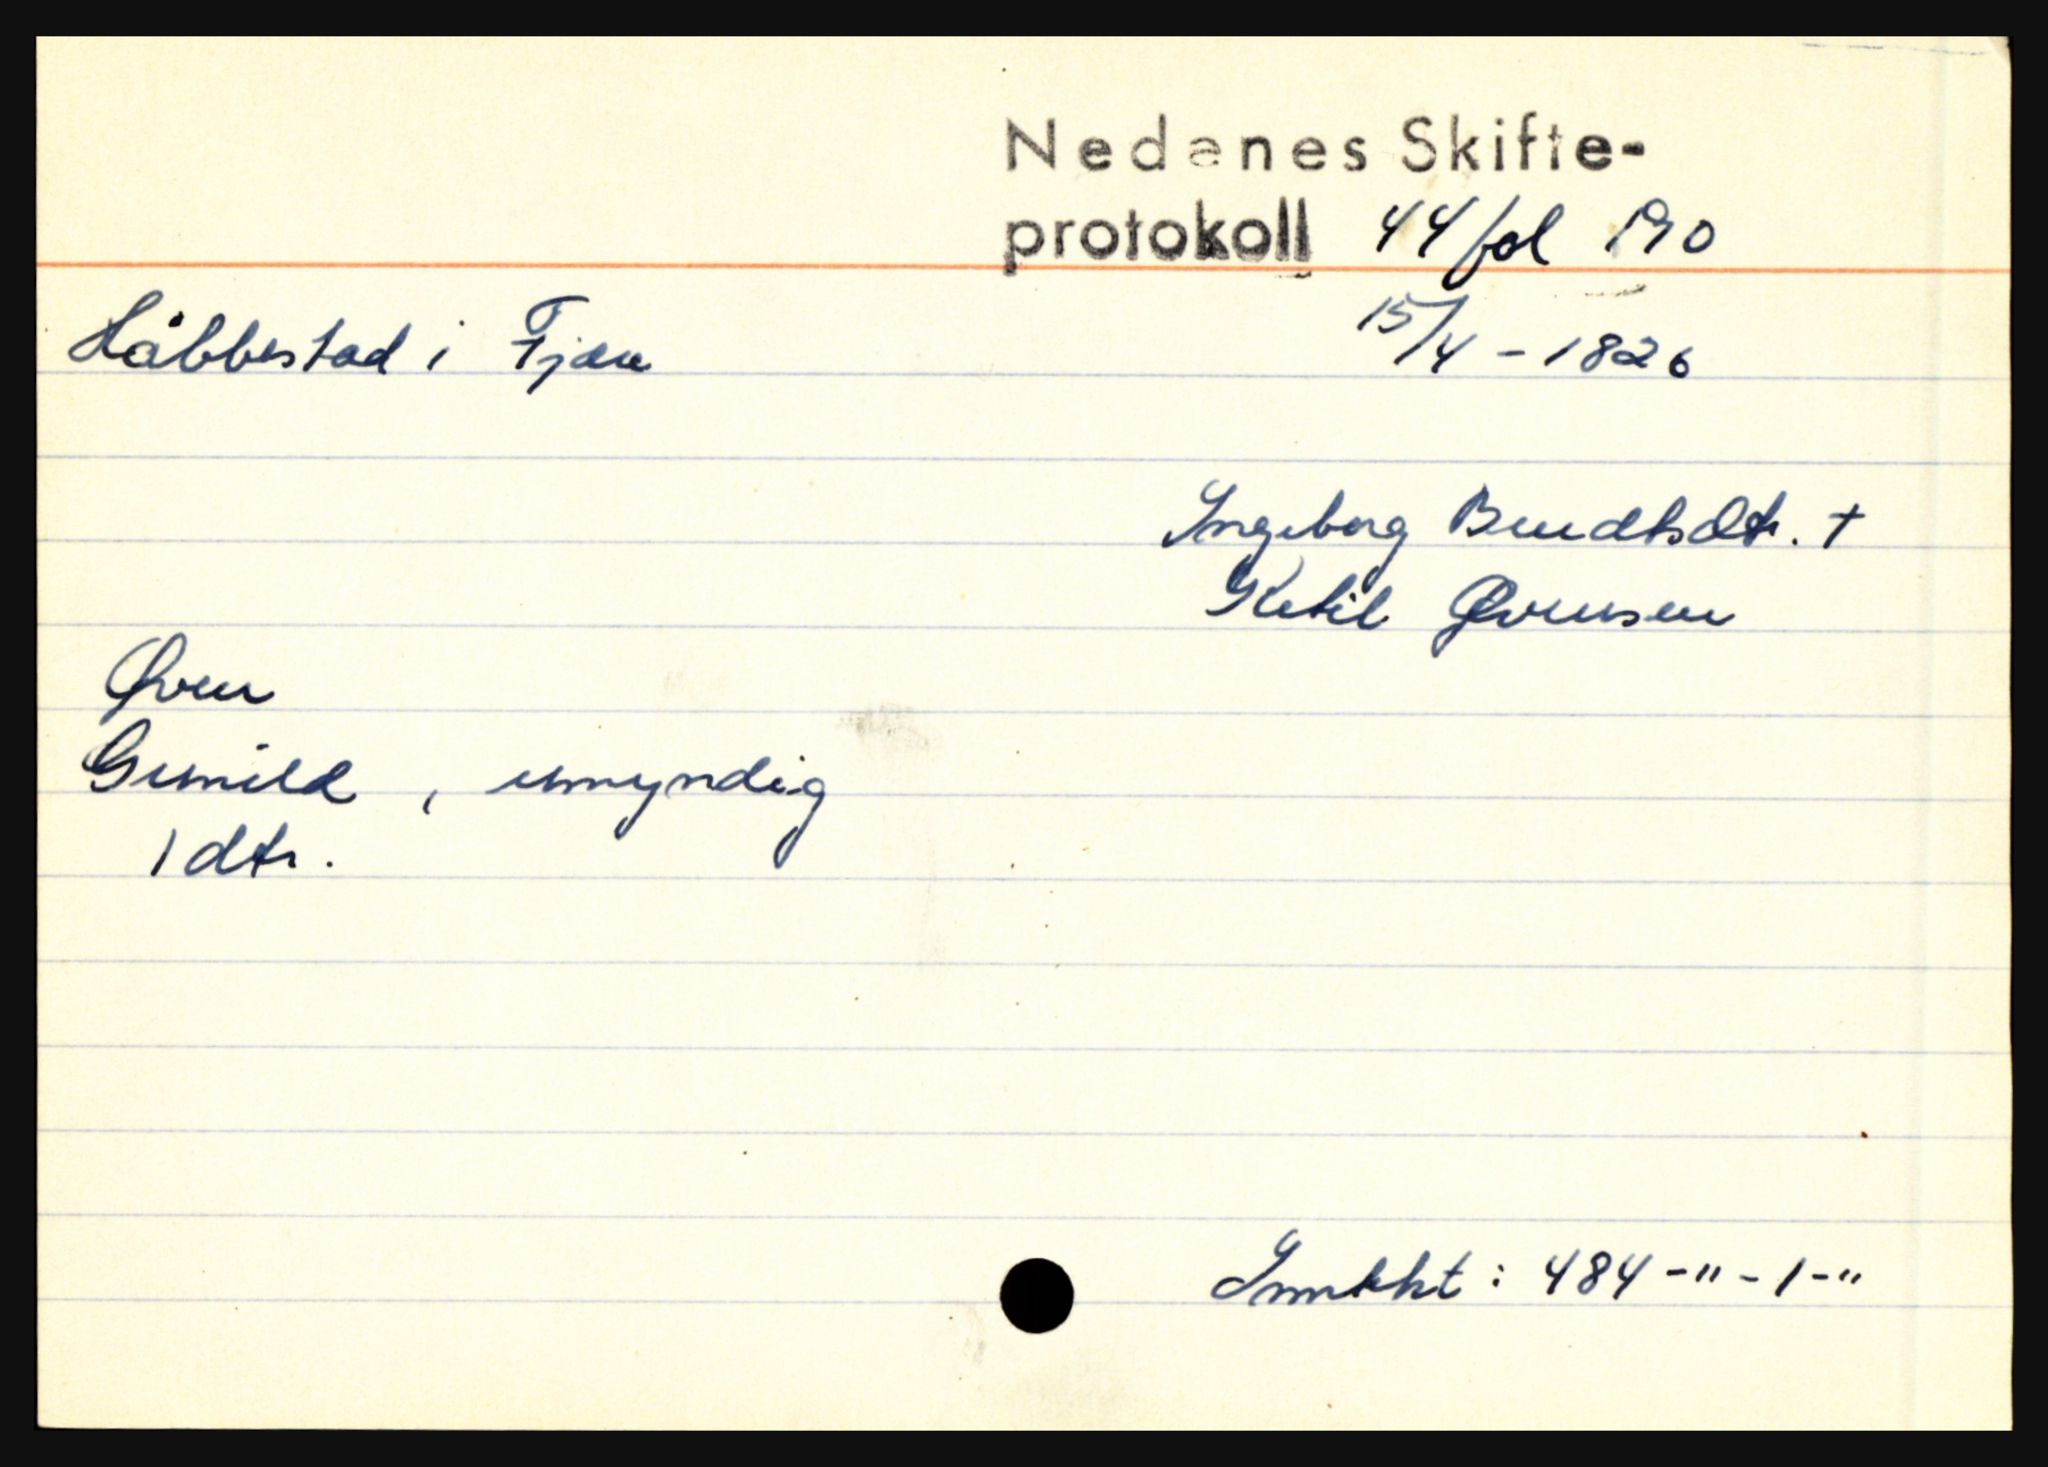 Nedenes Skifte-
protokoll 44 fol 190
Håbbestad i Fjære 15/4 - 1826
Ingeborg Berndtsdtr. +
Ketil Øvensen
Øven
Gunild, umyndig
1 dtr.
: 484-"-1-"